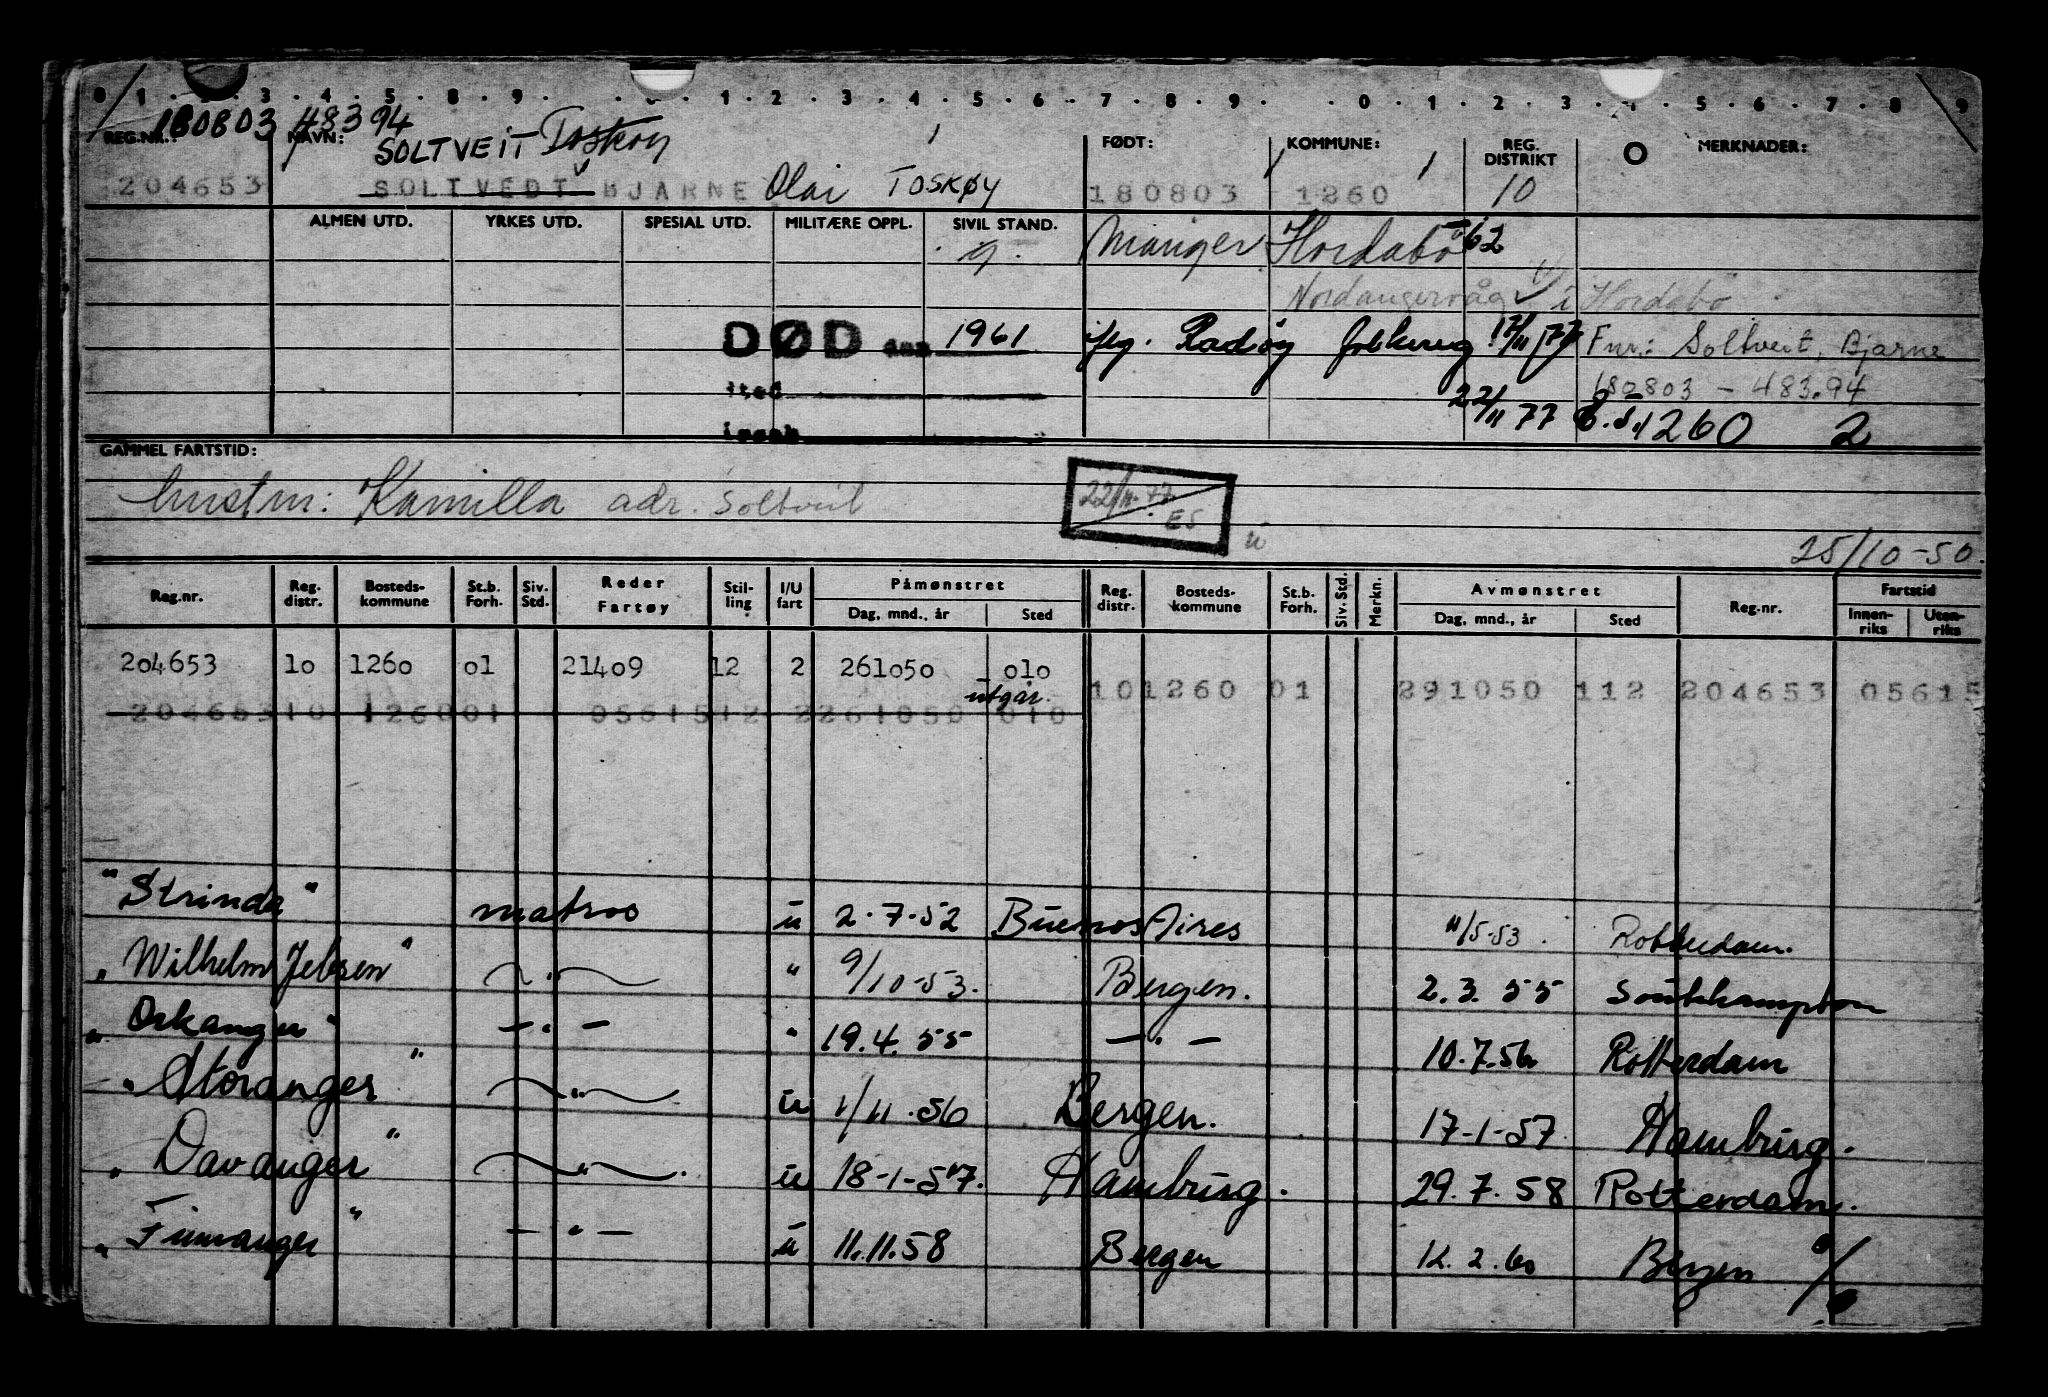 0 1 2 3 4 5 8 9 1 2 3 4 5 6 7 8 9 0 1 2 3 4 5 6 7 8 9
180803 48394
REG.NR.: NAVN: SOLTVEIT Toskøy FØDT: KOMMUNE: REG. DISTRIKT O MERKNADER:
204653 SOLTVEDT BJARNE Olai TOSKØY 180803 1260 10
ALMEN UTD. YRKES UTD. SPESIAL UTD. MILITÆRE OPPL. SIVIL STAND.
g. Manger Hordabø 62
Nordangervåg i Hordabø
DØD den 1961 iflg. Radøy folkereg 17/11 77 Fnr: Soltveit, Bjarne
sted 180803 - 483.94
22/11 77 E.S. 1260 2
GAMMEL FARTSTID:
hustru: Kamilla adr. Soltveit
22/11-77 ES
ü
25/10-50.
Reg.nr. Reg. distr. Bosteds-kommune St.b. Forh. Siv. Std. Reder Fartøy Stil-ling I/U fart Påmønstret Dag, mnd., år Sted Reg. distr. Bosteds-kommune St.b. Forh. Siv. Std. Merkn. Avmønstret Dag, mnd., år Sted Reg.nr. Fartstid Innen-riks Uten-riks
204653 10 1260 01 21409 12 2 261050 010
utgår.
101260 01 291050 112 204653 05615
204653 10 126001 0561512 2261050 010
"Strinda" matros ü 2.7.52 Buenos Aires 11/5-53. Rotterdam.
"Wilhelm Jebsen" " " 9/10-53. Bergen. 2.3.55 Southhampton
"Orkanger" -"- " 19.4.55 -"- 10.7.56 Rotterdam
"Storanger" " ü 1/11.56 Bergen. 17-1-57 Hamburg.
"Davanger" " ü 18-1-57. Hamburg. 29.7.58 Rotterdam.
"Finnanger" -"- ü 11.11.58 Bergen 12.2.60 Bergen %